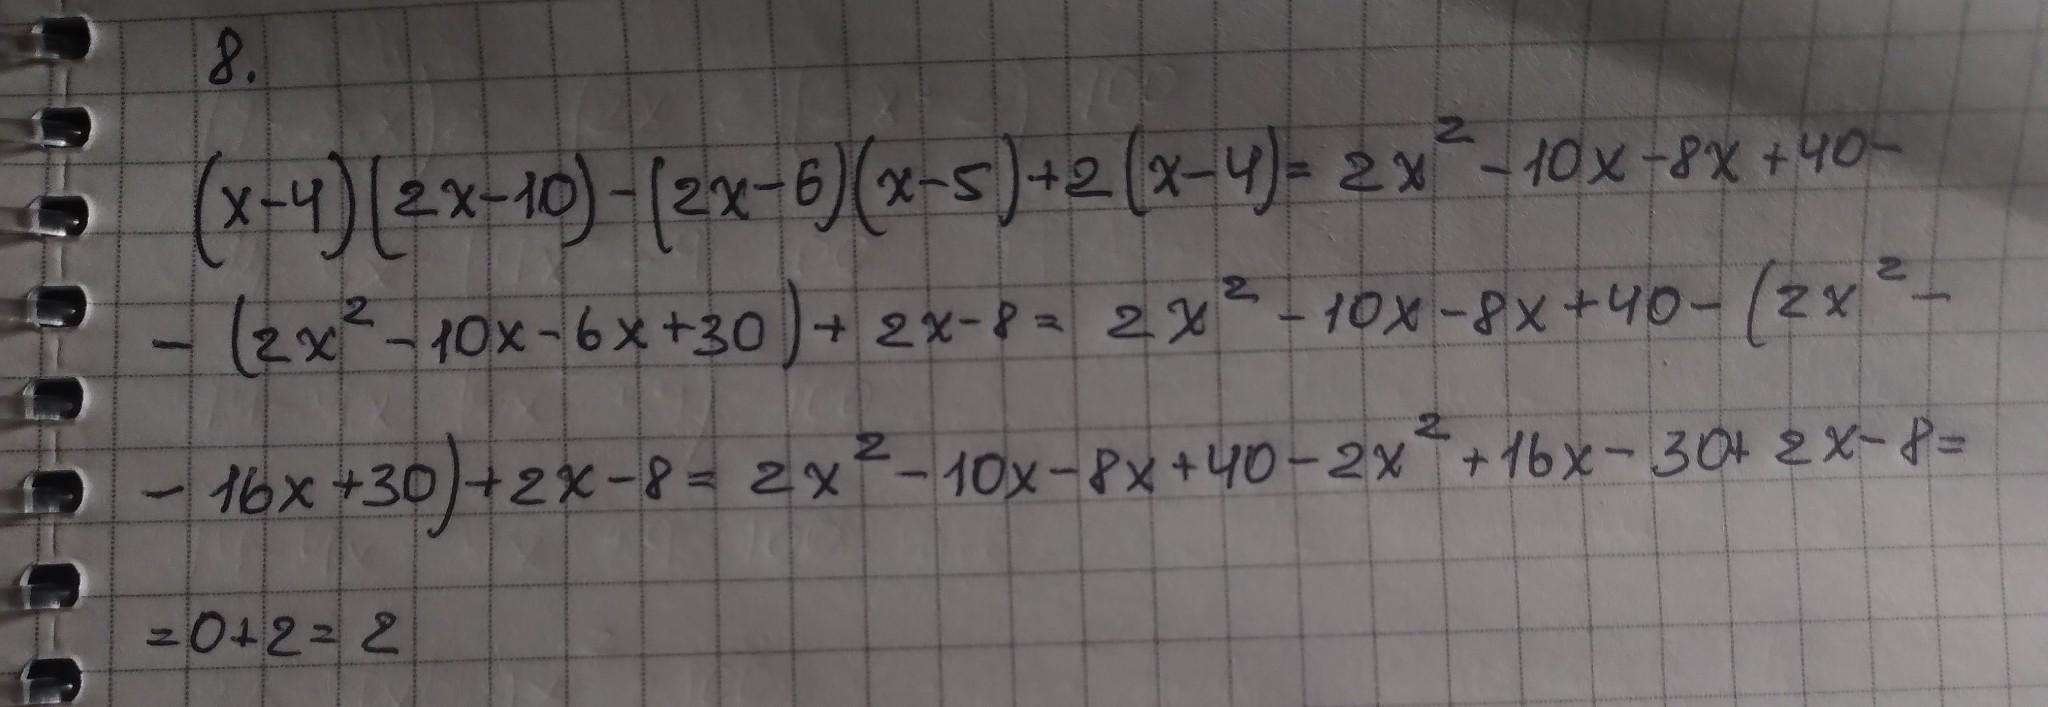 8.
(x-4)(2x-10)-(2x-6)(x-5)+2(x-4)= 2x²-10x-8x+40-
-(2x²-10x-6x+30)+2x-8= 2x²-10x-8x+40-(2x²-
-16x+30)+2x-8= 2x²-10x-8x+40-2x²+16x-30+2x-8=
=0+2=2